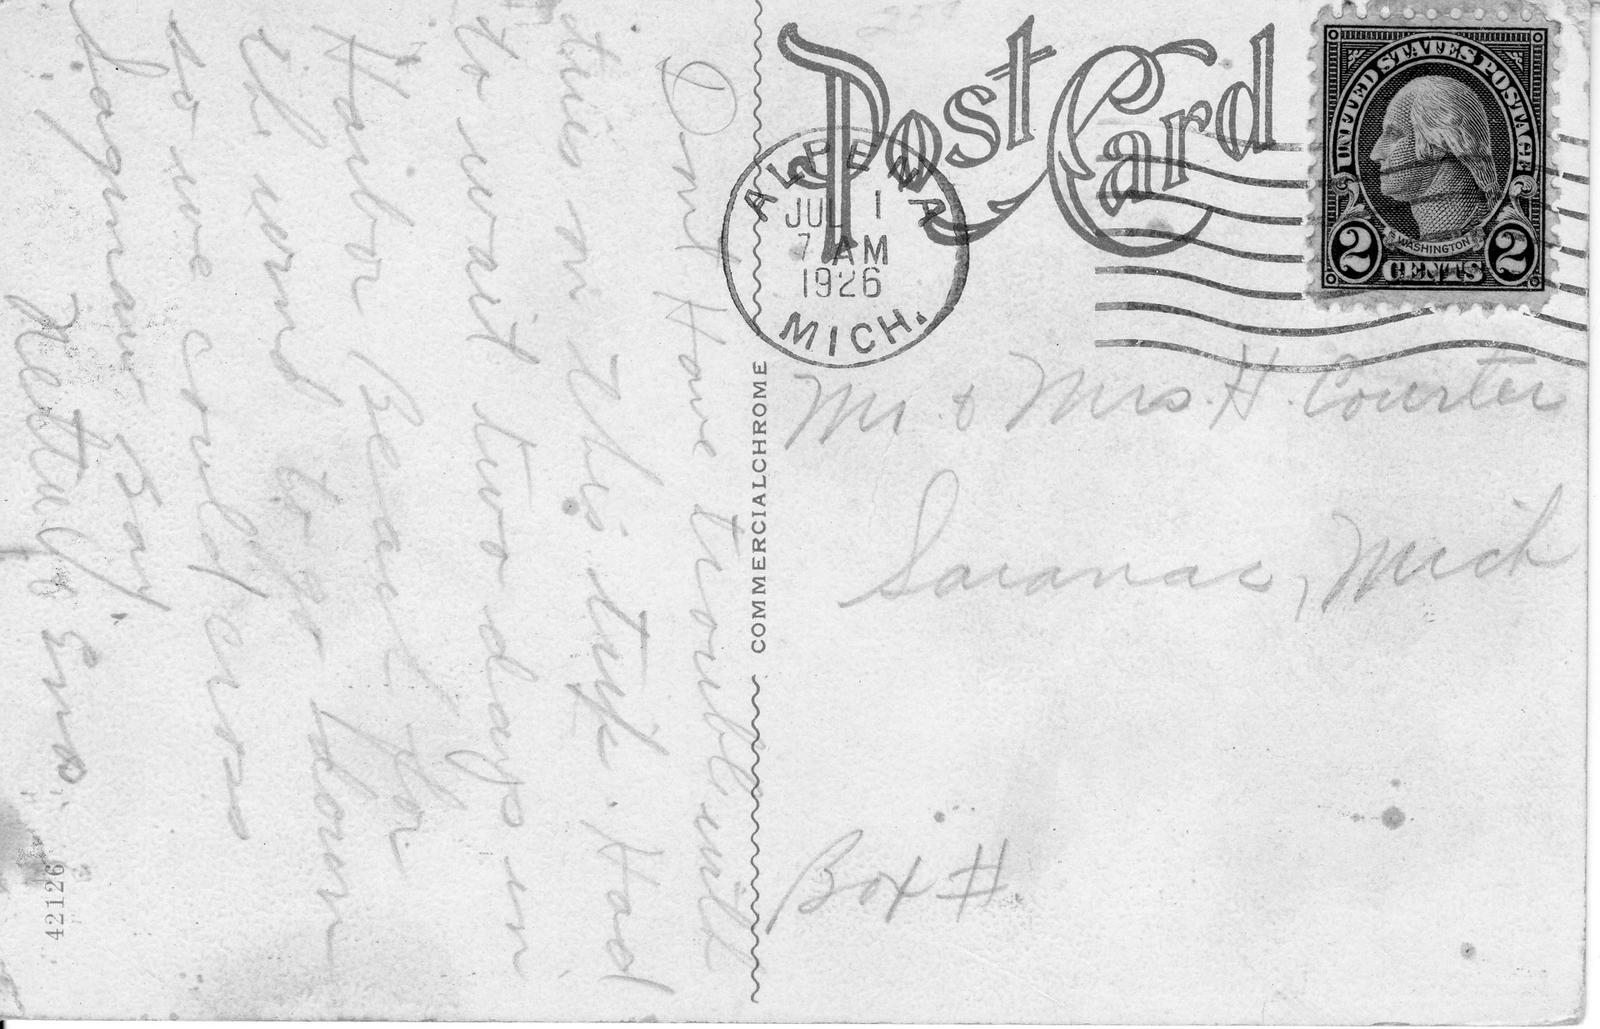 Post Card
ALPENA
JUL 1
7 AM
1926
MICH.
UNITED STATES POSTAGE
WASHINGTON
2 CENTS 2
Mr. & Mrs. H. Courter
Saranac, Mich
Box #.
COMMERCIALCHROME
Dont Have trouble with
tires on this trip. Had
to wait two days in
Harbor Beach for
the wind to go down
so we could cross
Saginaw Bay.
42126